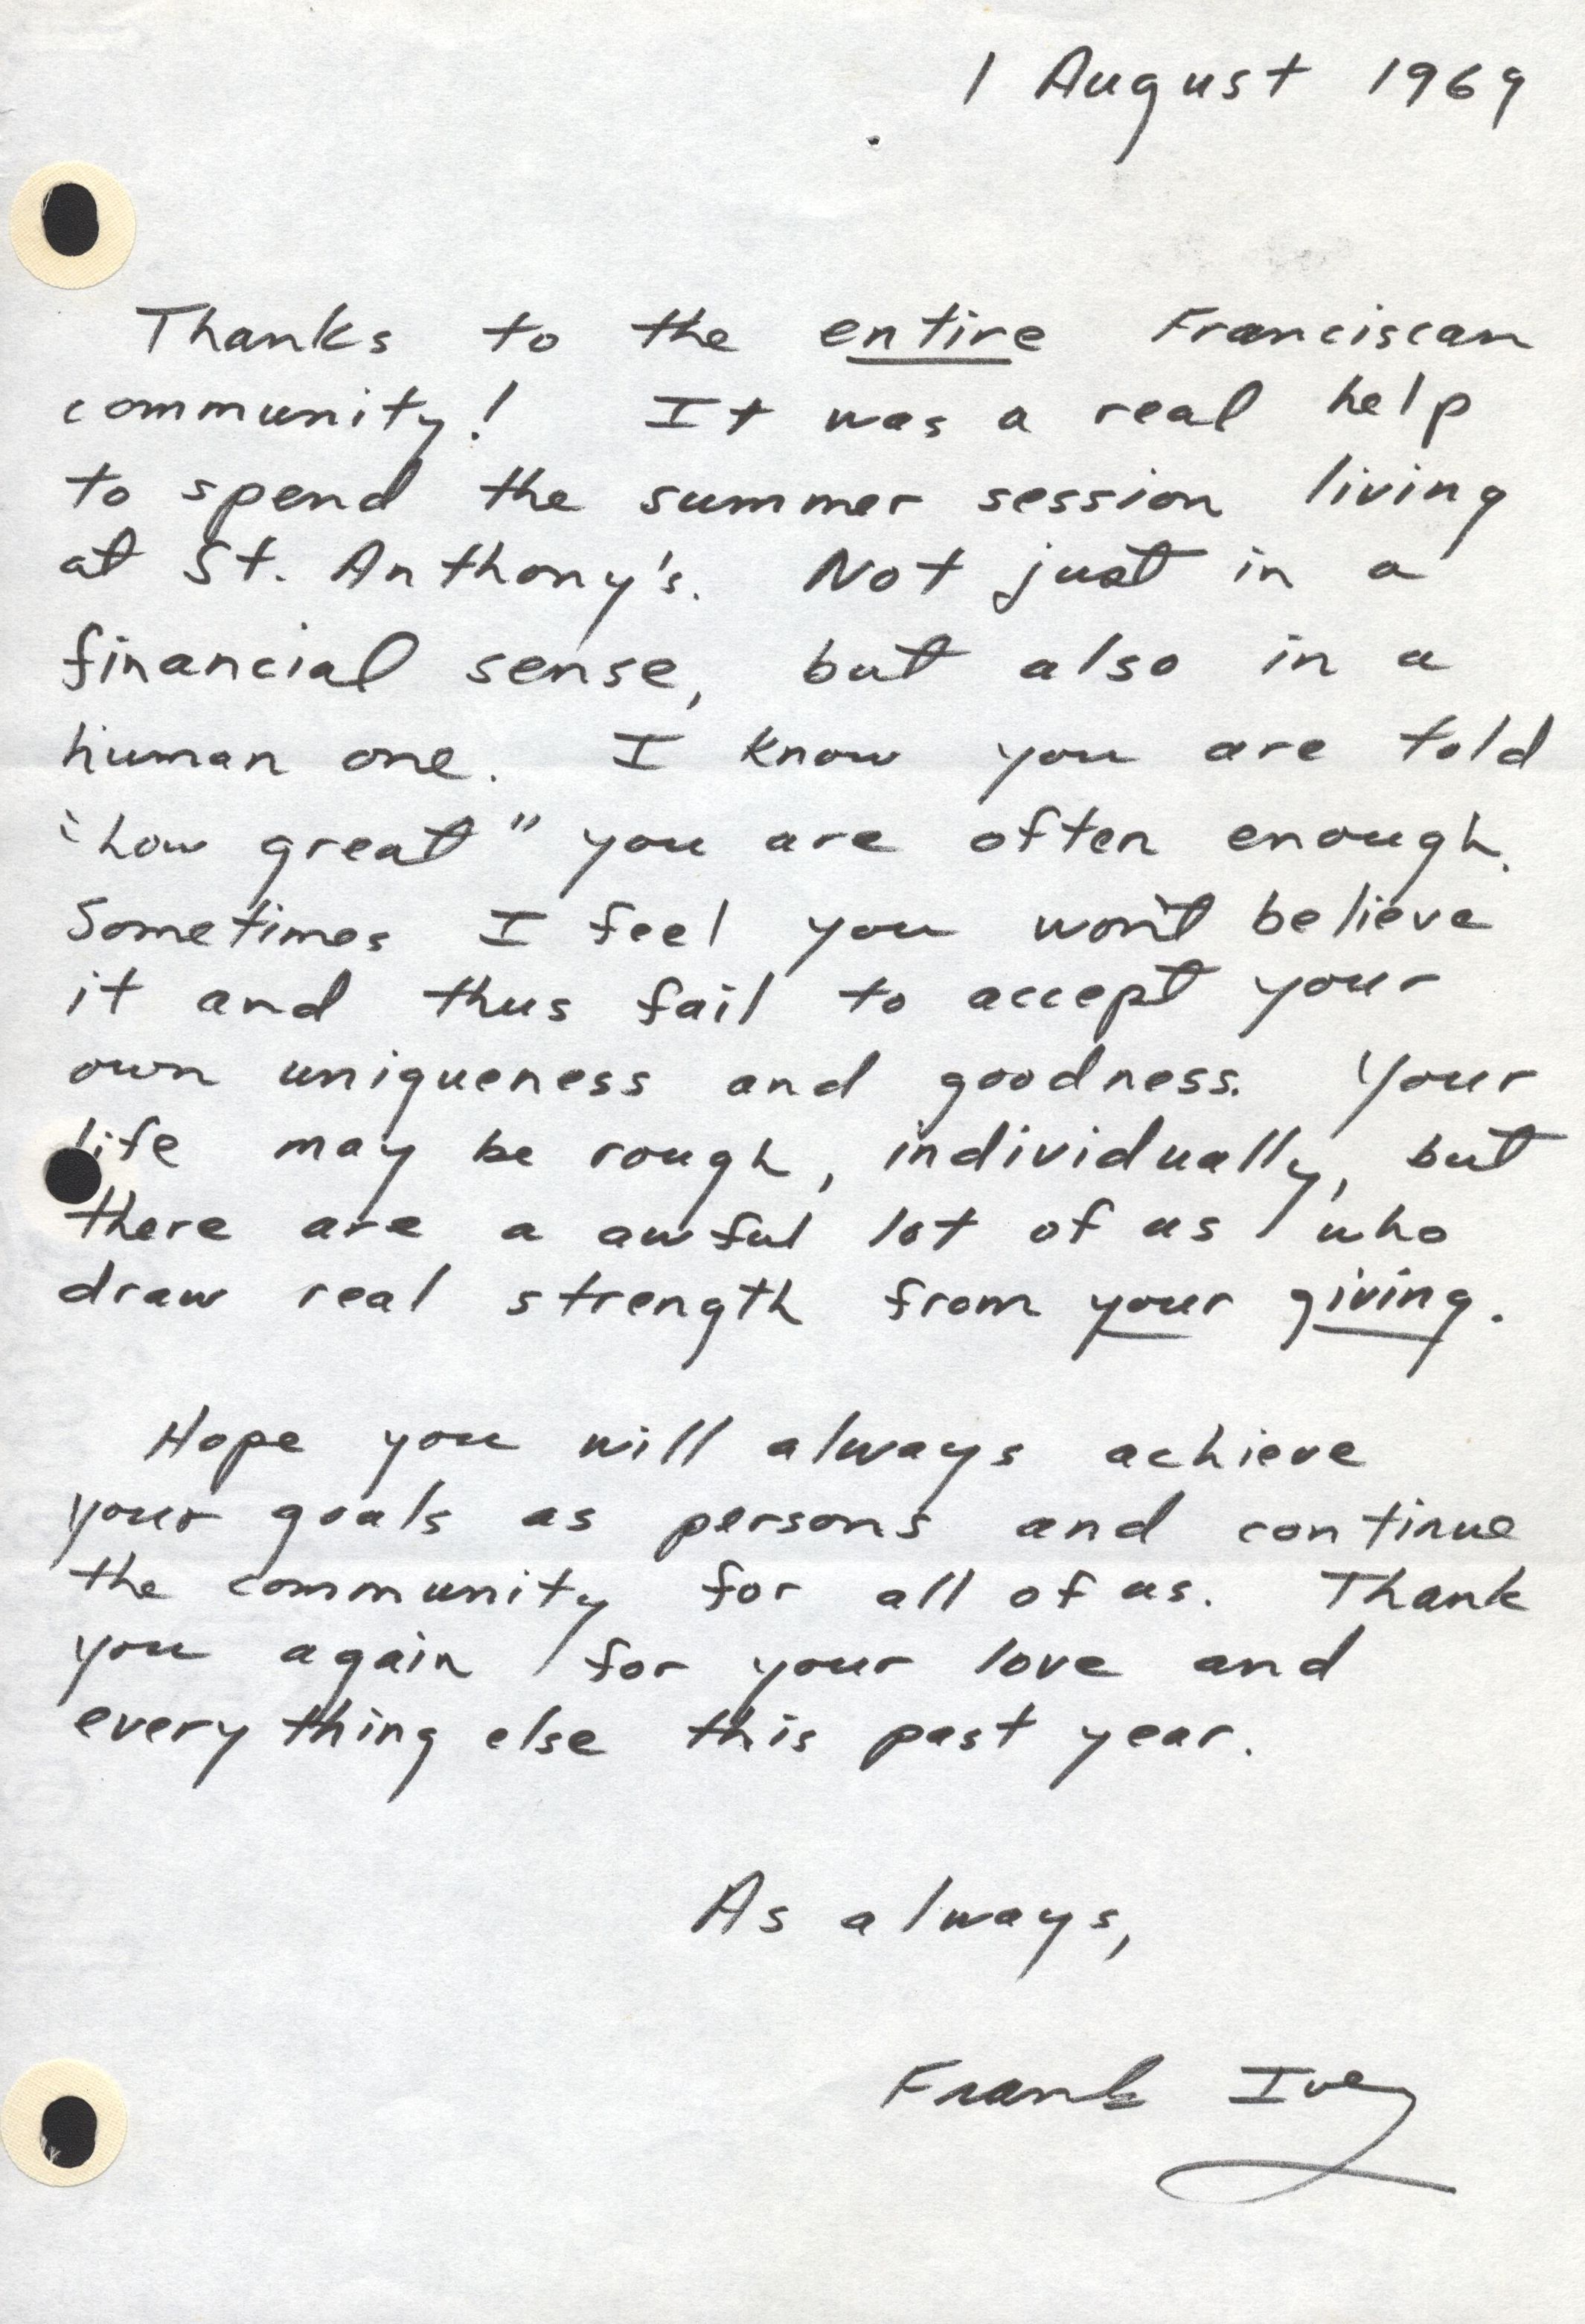 1 August 1969
Thanks to the entire Franciscan
community! It was a real help
to spend the summer session living
at St. Anthony's. Not just in a
financial sense, but also in a
human one. I know you are told
"how great" you are often enough.
Sometimes I feel you won't believe
it and thus fail to accept your
own uniqueness and goodness. Your
life may be rough, individually, but
there are a awful lot of us who
draw real strength from your giving.
Hope you will always achieve
your goals as persons and continue
the community for all of us. Thank
you again for your love and
everything else this past year.
As always,
Frank Ivey